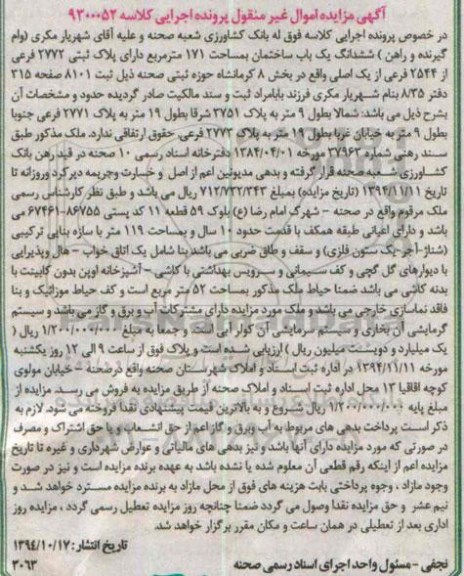 آگهی مزایده اموال غیر منقول پرونده اجرایی کلاسه ۹۳۰۰۰۵۲
در خصوص پرونده اجرایی کلاسه فوق له بانک کشاورزی شعبه صحنه و علیه آقای شهریار مکری (وام
گیرنده و راهن ) ششدانگ یک باب ساختمان بمساحت ۱۷۱ مترمربع دارای پلاک ثبتی ۲۷۷۲ فرعی
از ۲۵۴۴ فرعی از یک اصلی واقع در بخش ۸ کرمانشاه حوزه ثبتی صحنه ذیل ثبت ۸۱۰۱ صفحه ۳۱۵
دفتر ۸/۳۵ بنام شهریار مکری فرزند بابامراد ثبت و سند مالکیت صادر گردیده حدود و مشخصات آن
بشرح ذیل می باشد: شمالا بطول ۹ متر به پلاک ۳۷۵۱ شرقا بطول ۱۹ متر به پلاک ۲۷۷۱ فرعی جنوبا
بطول ۹ متر به خیابان غربا بطول ۱۹ متر به پلاک ۲۷۷۳ فرعی. حقوق ارتفاقی ندارد. ملک مذکور طبق
سند رهنی شماره ۳۷۹۶۳ مورخه ۱۳۸۴/۰۴/۰۱ دفترخانه اسناد رسمی ۱۰ صحنه در قید رهن بانک
کشاورزی شعبه صحنه قرار گرفته و بدهی مدیونین اعم از اصل و خسارت وجریمه دیرکرد وروزانه تا
تاریخ ۱۳۹۴/۱۱/۱۱ (تاریخ مزایده) بمبلغ ۷۱۲/۷۳۲/۳۴۳ ریال می باشد و طبق نظر کارشناس رسمی
ملک مرقوم واقع در صحنه - شهرک امام رضا (ع) بلوک ۵۹ قطعه ۱۱ کد پستی ۸۶۷۵۵-۶۷۴۶۱ می
باشد و دارای اعیانی طبقه همکف با قدمت حدود ۱۰ سال و بمساحت ۱۱۹ متر با سازه بنایی ترکیبی
(شناژ- آجر یک ستون فلزی) و سقف و طاق ضربی می باشد بنا شامل یک اتاق خواب - هال وپذیرایی
با دیوارهای گل گچی و کف سیمانی و سرویس بهداشتی با کاشی - آشپزخانه اوپن بدون کابینت با
بدنه کاشی می باشد ضمنا حیاط ملک مذکور بمساحت ۵۲ متر مربع است و کف حیاط موزائیک و بنا
فاقد نماسازی خارجی می باشد و ملک مورد مزایده دارای مشترکات آب و برق و گاز می باشد و سیستم
گرمایشی آن بخاری و سیستم سرمایشی آن کولر آبی است و جمعا به مبلغ ۱/۲۰۰/۰۰۰/۰۰۰ ریال (
یک میلیارد و دویست میلیون ریال ) ارزیابی شده است و پلاک فوق از ساعت ۹ الی ۱۲ روز یکشنبه
مورخه ۱۳۹۴/۱۱/۱۱ در اداره ثبت اسناد و املاک شهرستان صحنه واقع درصحنه - خیابان مولوی
کوچه اقاقیا ۱۳ محل اداره ثبت اسناد و املاک صحنه از طریق مزایده به فروش می رسد. مزایده از
مبلغ پایه ۱/۲۰۰/۰۰۰/۰۰۰ ریال شروع و به بالاترین قیمت پیشنهادی نقدا فروخته می شود. لازم به
ذکر است پرداخت بدهی های مربوط به آب وبرق و گاز اعم از حق انشعاب و یا حق اشتراک و مصرف
در صورتی که مورد مزایده دارای آنها باشد و نیز بدهی های مالیاتی و عوارض شهرداری و غیره تا تاریخ
مزایده اعم از اینکه رقم قطعی آن معلوم شده یا نشده باشد به عهده برنده مزایده است و نیز در صورت
وجود مازاد ، وجوه پرداختی بابت هزینه های فوق از محل مازاد به برنده مزایده مسترد خواهد شد و
نیم عشر و حق مزایده نقدا وصول می گردد ضمنا چنانچه روز مزایده تعطیل رسمی گردد ، مزایده روز
اداری بعد از تعطیلی در همان ساعت و مکان مقرر برگزار خواهد شد.
تاریخ انتشار: ۱۳۹۴/۱۰/۱۷
نجفی - مسئول واحد اجرای اسناد رسمی صحنه
۳۰۶۳